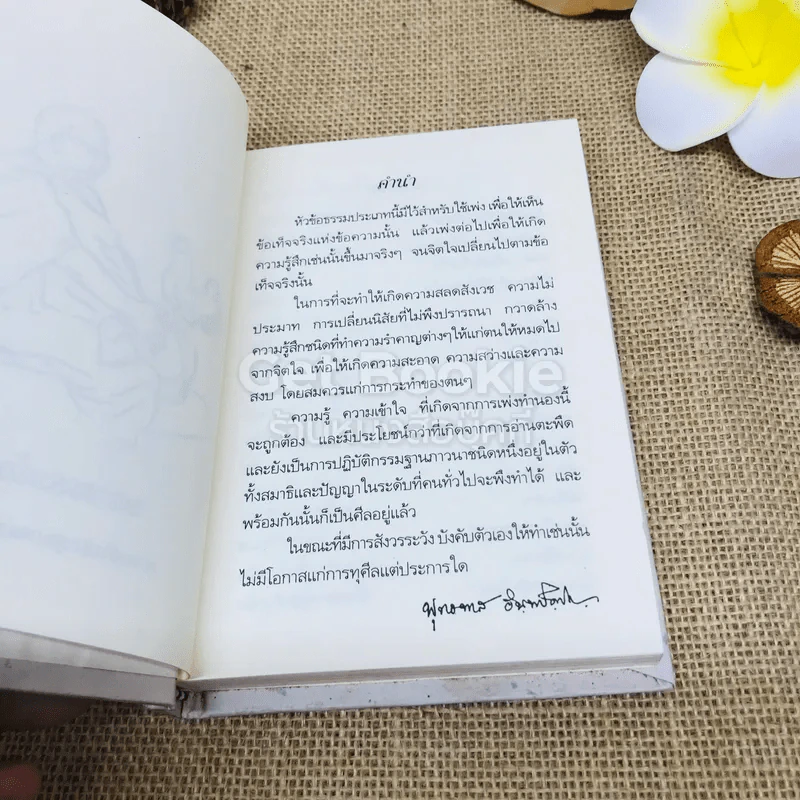 คำนำ
หัวข้อธรรมประเภทนี้มีไว้สำหรับใช้เพ่ง เพื่อให้เห็น
ข้อเท็จจริงแห่งข้อความนั้น แล้วเพ่งต่อไปเพื่อให้เกิด
ความรู้สึกเช่นนั้นขึ้นมาจริงๆ จนจิตใจเปลี่ยนไปตามข้อ
เท็จจริงนั้น
ในการที่จะทำให้เกิดความสลดสังเวช ความไม่
ประมาท การเปลี่ยนนิสัยที่ไม่พึงปรารถนา กวาดล้าง
ความรู้สึกชนิดที่ทำความรำคาญต่างๆให้แก่ตนให้หมดไป
จากจิตใจ เพื่อให้เกิดความสะอาด ความสว่างและความ
สงบ โดยสมควรแก่การกระทำของตนๆ
Get Bookie
ความรู้ ความเข้าใจ ที่เกิดจากการเพ่งทำนองนี้
ร้านหนังสือบุ๊คกี้
จะถูกต้อง และมีประโยชน์กว่าที่เกิดจากการอ่านตะพืด
และยังเป็นการปฏิบัติกรรมฐานภาวนาชนิดหนึ่งอยู่ในตัว
ทั้งสมาธิและปัญญาในระดับที่คนทั่วไปจะพึงทำได้ และ
พร้อมกันนั้นก็เป็นศีลอยู่แล้ว
ในขณะที่มีการสังวรระวัง บังคับตัวเองให้ทำเช่นนั้น
ไม่มีโอกาสแก่การทุศีลแต่ประการใด
พุทธทาส อินฺทปญฺโญ